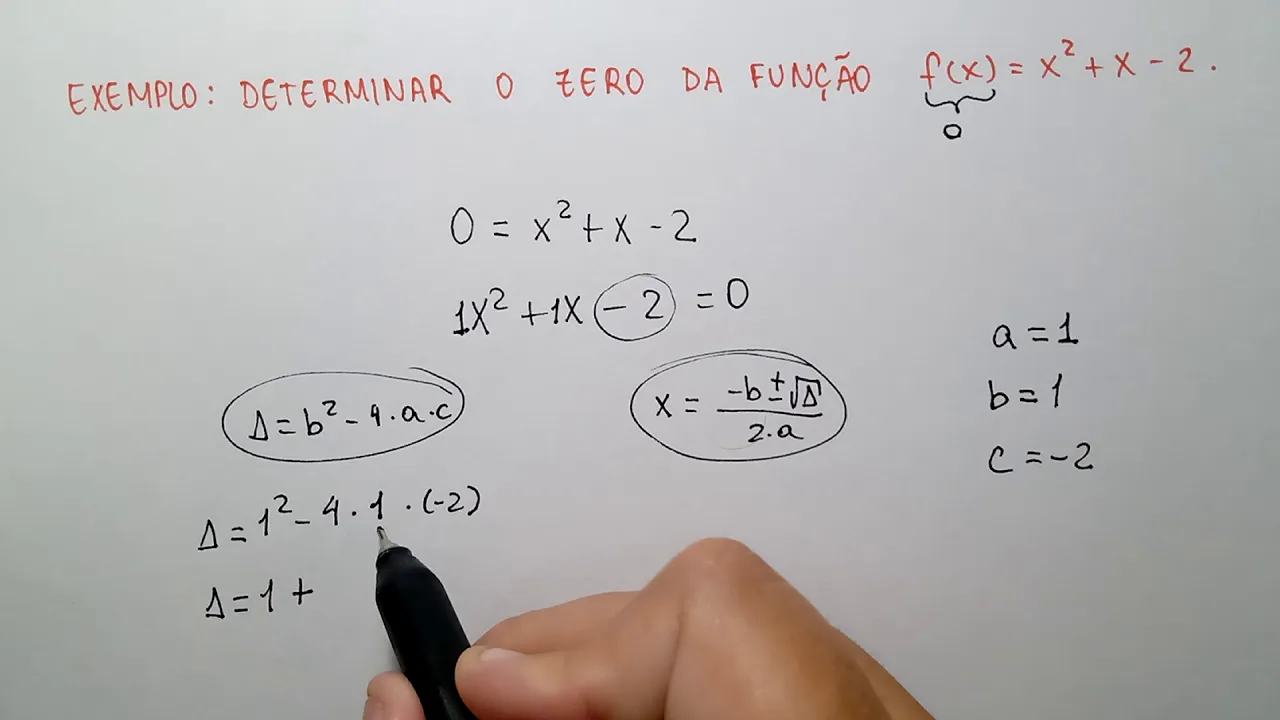 EXEMPLO: DETERMINAR O ZERO DA FUNÇÃO f(x) = x² + x - 2.
0
0 = x² + x - 2
1x² + 1x - 2 = 0
a = 1
b = 1
c = -2
Δ = b² - 4 · a · c
x = -b ± √Δ / 2 · a
Δ = 1² - 4 · 1 · (-2)
Δ = 1 +